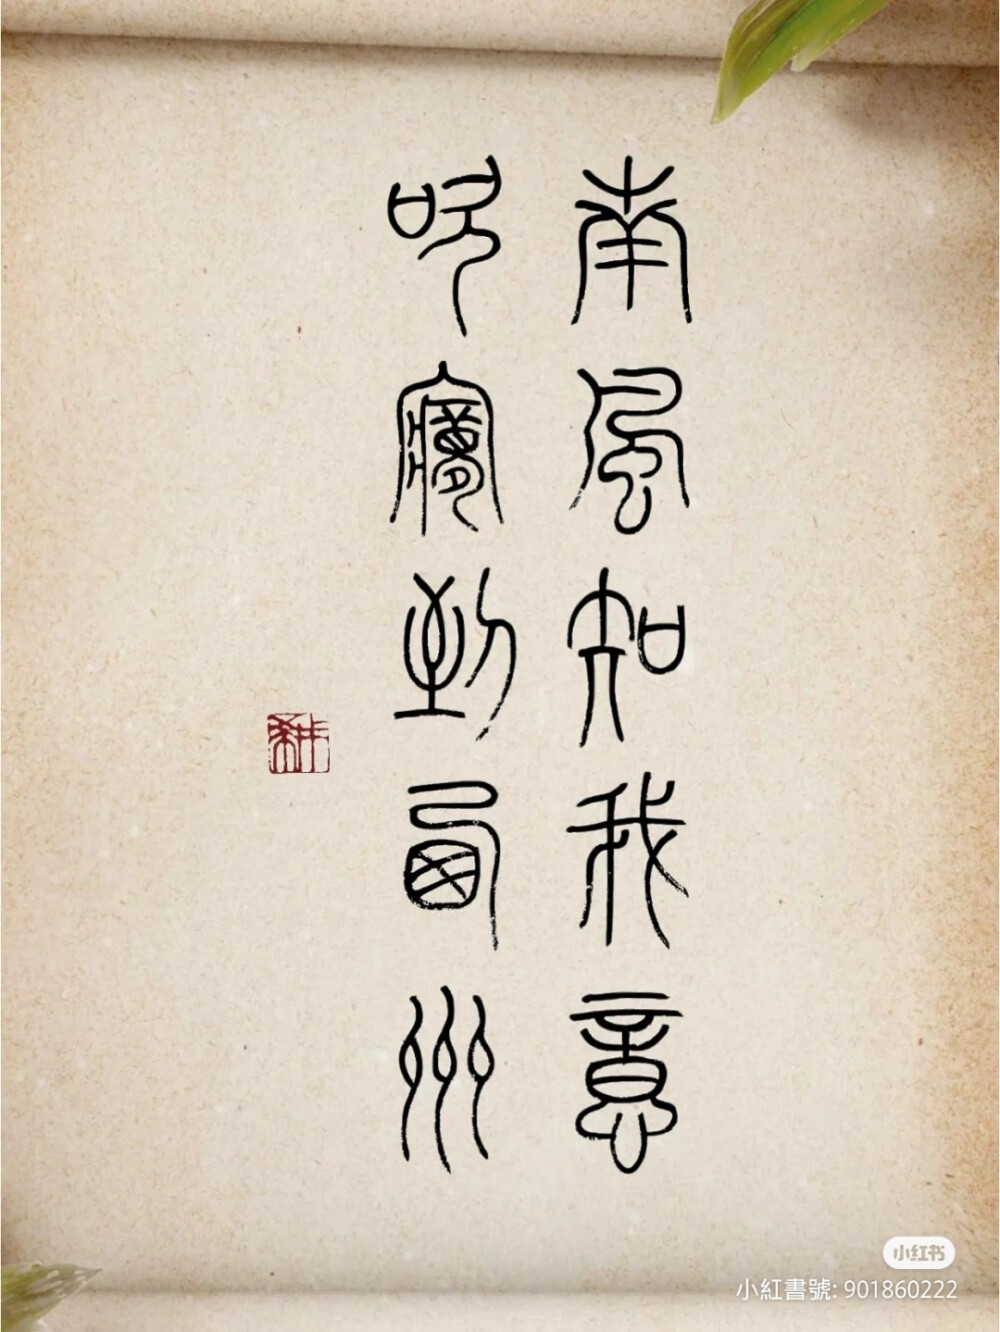 南風知我意
吹夢到西州
小红书
小紅書號: 901860222